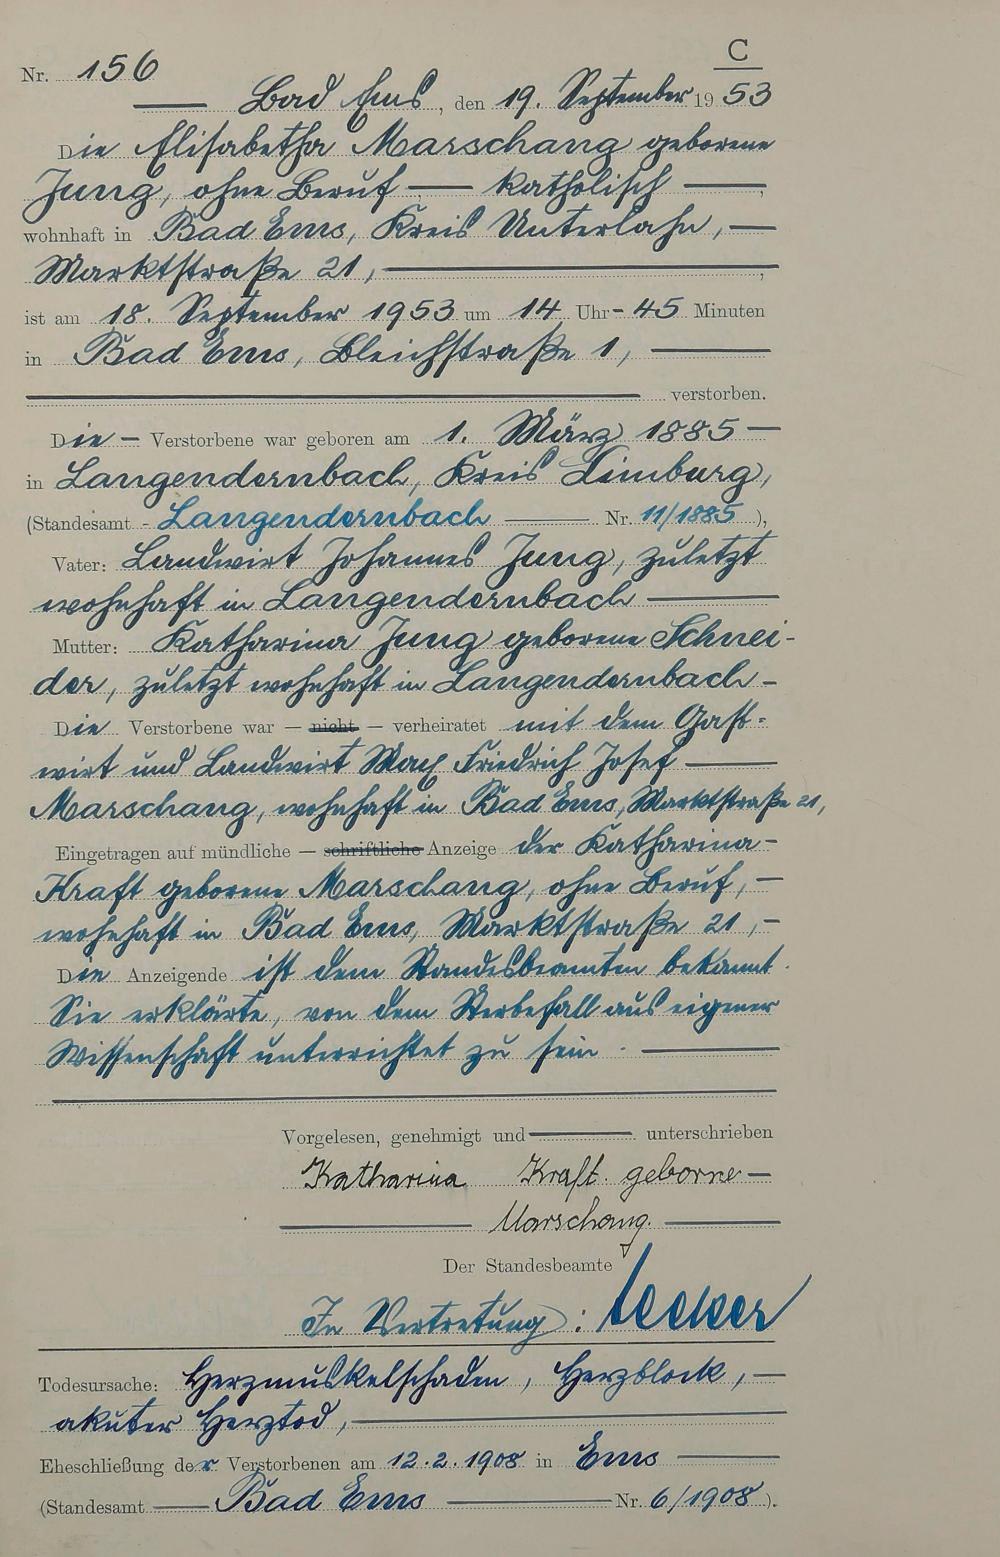 C
Nr. 156
Bad Ems, den 19. September 1953
Die Elisabetha Marschang geborene
Jung, ohne Beruf — katholisch —,
wohnhaft in Bad Ems, Kreis Unterlahn, —
Marktstraße 21, —,
ist am 18. September 1953 um 14 Uhr - 45 Minuten
in Bad Ems, Bleichstraße 1, —
— verstorben.
Die — Verstorbene war geboren am 1. März 1885 —
in Langendernbach, Kreis Limburg,
(Standesamt - Langendernbach — Nr. 11/1885 ),
Vater: Landwirt Johannes Jung, zuletzt
wohnhaft in Langendernbach —
Mutter: Katharina Jung geborene Schnei-
der, zuletzt wohnhaft in Langendernbach -
Die Verstorbene war — nicht — verheiratet mit dem Gast=
wirt und Landwirt Friedrich Josef —
Marschang, wohnhaft in Bad Ems, Marktstraße 21,
Eingetragen auf mündliche — schriftliche Anzeige der Katharina -
Kraft geborene Marschang, ohne Beruf, —
wohnhaft in Bad Ems, Marktstraße 21, -
Die Anzeigende ist dem Standesbeamten bekannt.
Sie erklärte, von dem Sterbefall aus eigener
Wissenschaft unterrichtet zu sein. —
Vorgelesen, genehmigt und — unterschrieben
Katharina Kraft geborne —
— Marschang. —
Der Standesbeamte
In Vertretung:
Todesursache: Herzmuskelschaden, Herzblock, —
akuter Herztod, —
Eheschließung der Verstorbenen am 12.2.1908 in Ems —
(Standesamt — Bad Ems — Nr. 6/1908 ).